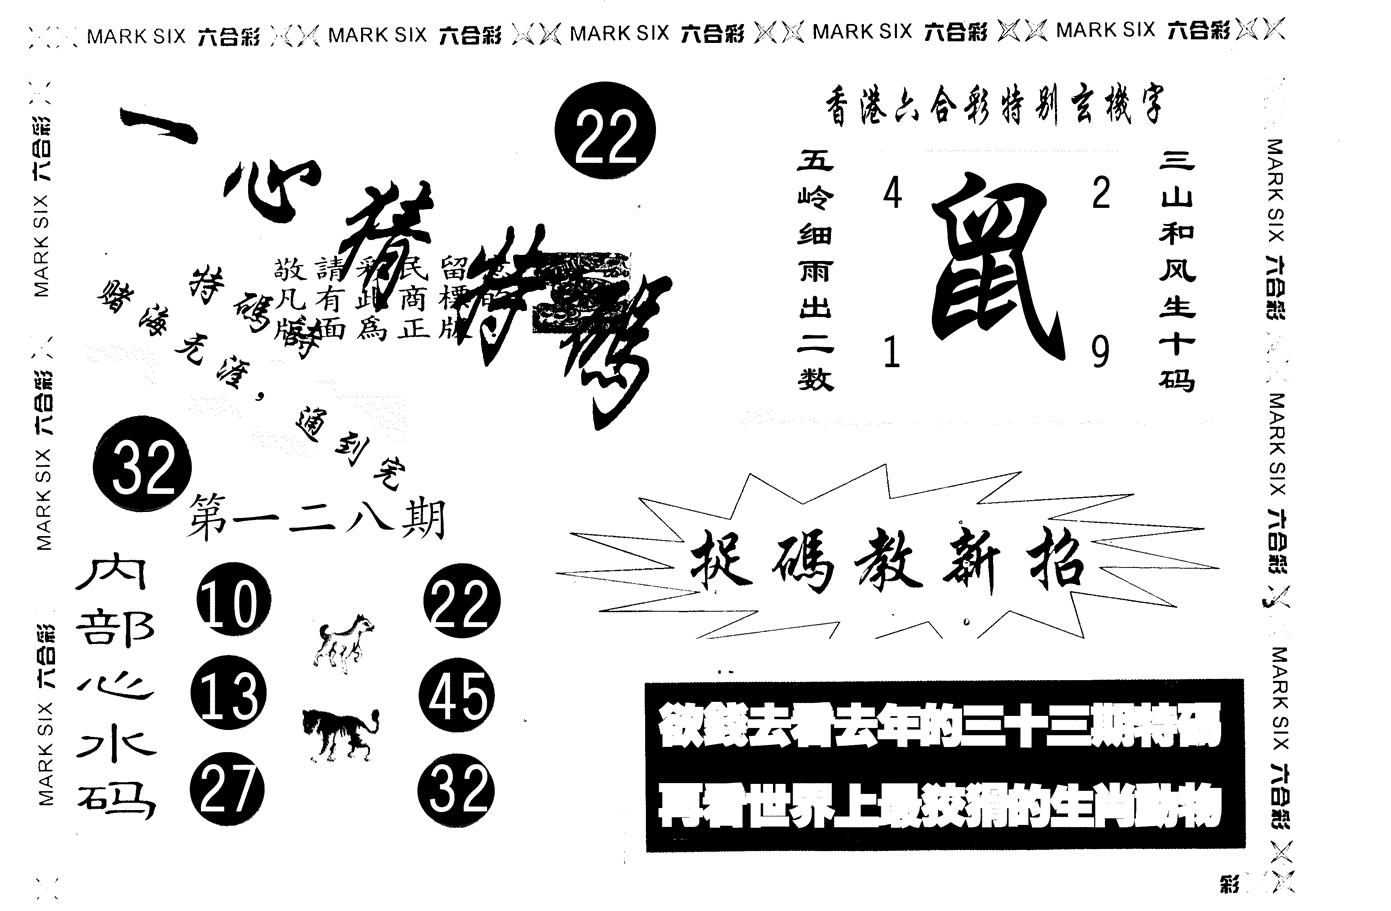 MARK SIX 六合彩 MARK SIX 六合彩 MARK SIX 六合彩 MARK SIX 六合彩 MARK SIX 六合彩
一心猜特碼
22
敬請彩民留意
凡有此商標的
版面為正版
特碼詩
赌海无涯，通到完
32
第一二八期
内部心水码
10
22
13
45
27
32
香港六合彩特别玄機字
五岭细雨出二数
4
2
鼠
1
9
三山和风生十码
捉碼教新招
欲錢去看去年的三十三期特碼
再看世界上最狡猾的生肖動物
MARK SIX 六合彩
MARK SIX 六合彩
MARK SIX 六合彩
MARK SIX 六合彩
MARK SIX 六合彩
MARK SIX 六合彩
彩